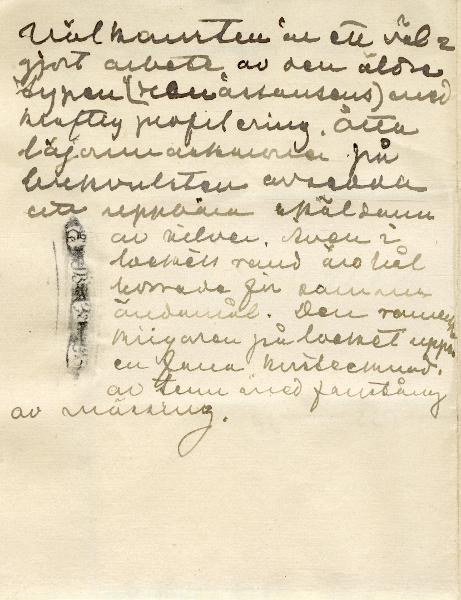 Välkomsten är ett väl=
gjort arbete av den äldre
typen (renässansens) med
kraftig profilering. Åtta
lejonmaskaroner på
livkvulsten avsedda
att uppbära sköldarna
av silver. Även i
lockets rand äro hål
borrade för samma
ändamål. Den romerska
krigaren på locket uppbär
en fana, kvistecknad,
av tenn med fanstång
av mässing.